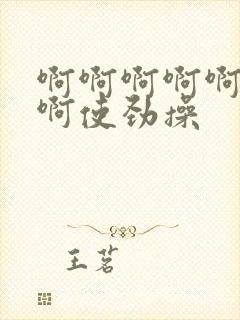 啊啊啊啊啊
啊使劲操
王茗